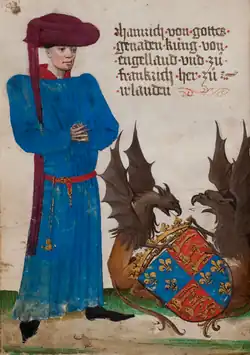 hainrich · von · gottes ·
genaden · kung · von ·
engelland · vnd · zů ·
frankrich · her · zů ·
irlanden